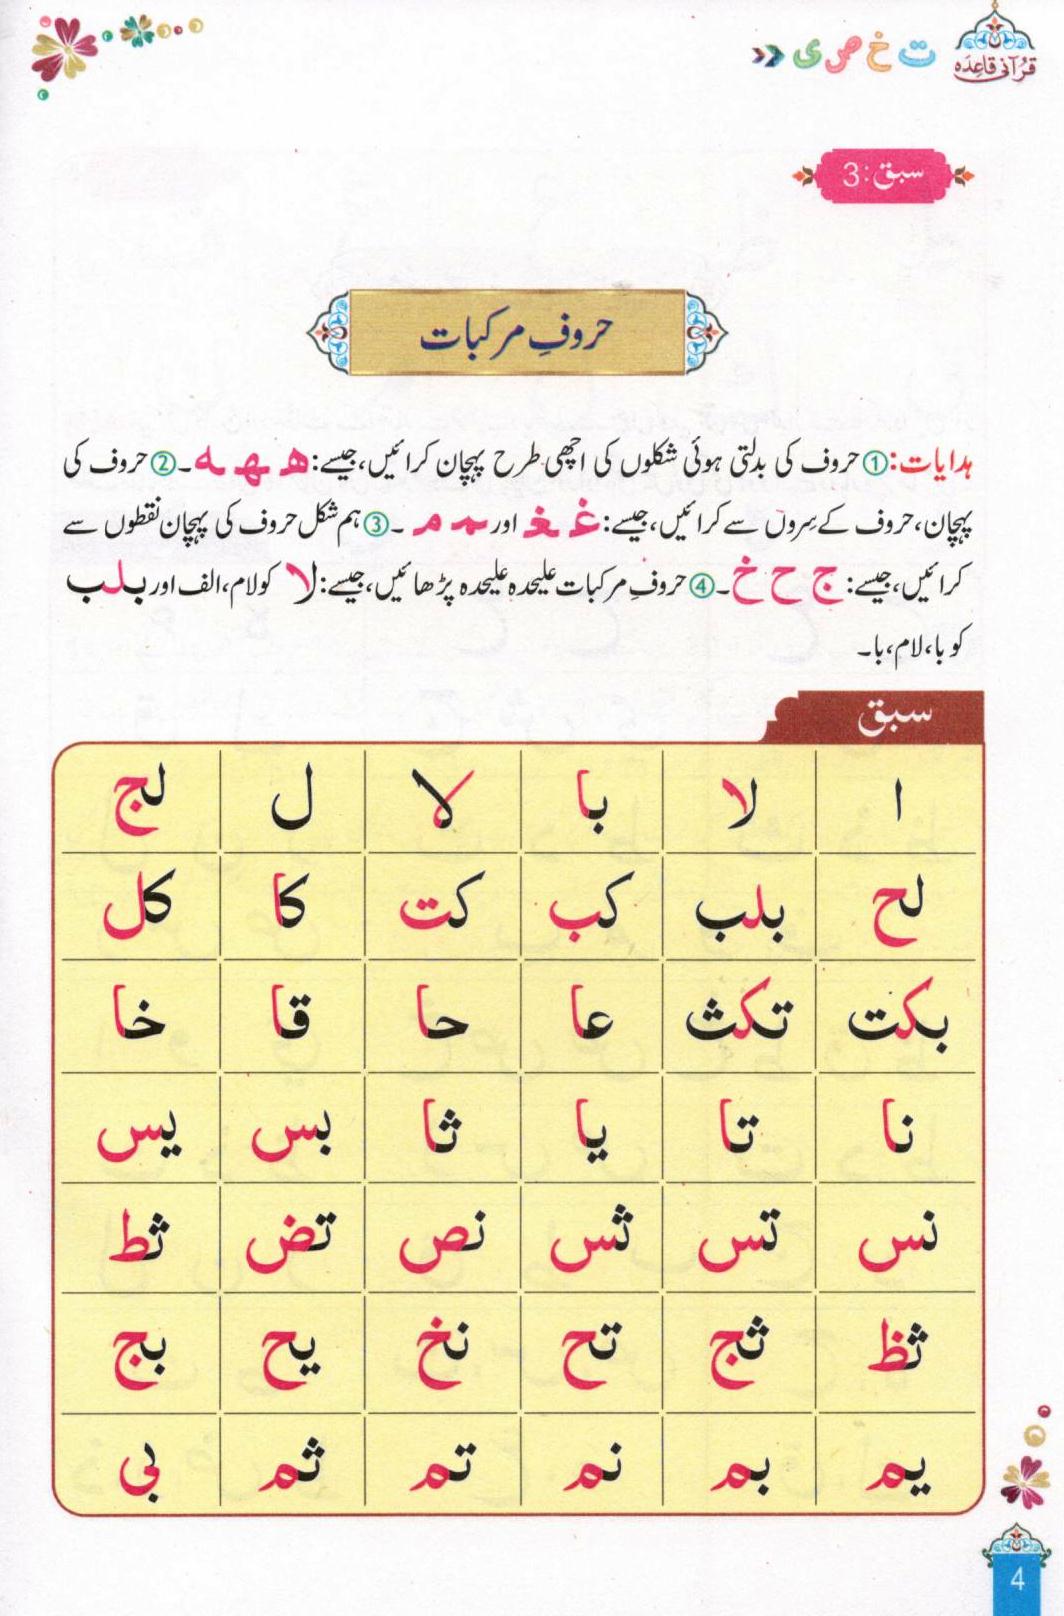 ت خ ص ی
قرآنی قاعدہ
سبق:3
حروفِ مرکبات
ہدایات:① حروف کی بدلتی ہوئی شکلوں کی اچھی طرح پہچان کرائیں، جیسے: ھ ـہـ ـہ ۔② حروف کی
پہچان، حروف کے سِروں سے کرائیں، جیسے: غ ـغـ اور ـمـ م ۔③ ہم شکل حروف کی پہچان نقطوں سے
کرائیں، جیسے: ج ح خ ۔④ حروفِ مرکبات علیحدہ علیحدہ پڑھائیں، جیسے: لا کو لام، الف اور بلب
کو با، لام، با۔
سبق
ا لا با لا ل لج
لح بلب کب کت کا کل
بکت تکث عا حا قا خا
نا تا یا ثا بس یس
نس تس ثس نص تض ثط
ثظ ثج تح نخ یح بج
یم بم نم تم ثم بی
4